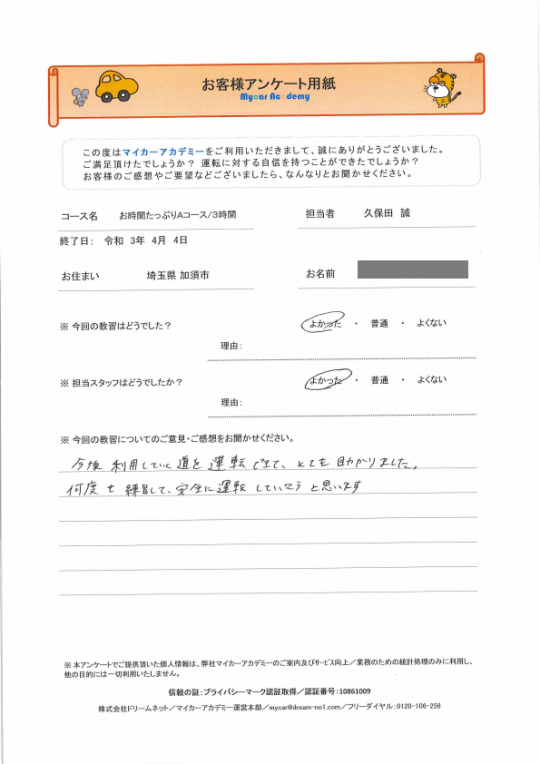 お客様アンケート用紙
Mycar Academy
この度はマイカーアカデミーをご利用いただきまして、誠にありがとうございました。
ご満足頂けたでしょうか？ 運転に対する自信を持つことができたでしょうか？
お客様のご感想やご要望などございましたら、なんなりとお聞かせください。
コース名 お時間たっぷりAコース/3時間 担当者 久保田 誠
終了日： 令和 3年 4月 4日
お住まい 埼玉県 加須市 お名前
※ 今回の教習はどうでした？ よかった ・ 普通 ・ よくない
理由：
※ 担当スタッフはどうでしたか？ よかった ・ 普通 ・ よくない
理由：
※ 今回の教習についてのご意見・ご感想をお聞かせください。
今後 利用していく道を 運転 できて、とても 助かりました。
何度も 練習して、安全に運転 していこう と思います
※ 本アンケートでご提供頂いた個人情報は、弊社マイカーアカデミーのご案内及びサービス向上／業務のための統計処理のみに利用し、
他の目的には一切利用いたしません。
信頼の証：プライバシーマーク認証取得／認証番号：10861009
株式会社ドリームネット／マイカーアカデミー運営本部／mycar@dream-no1.com／フリーダイヤル：0120-106-256